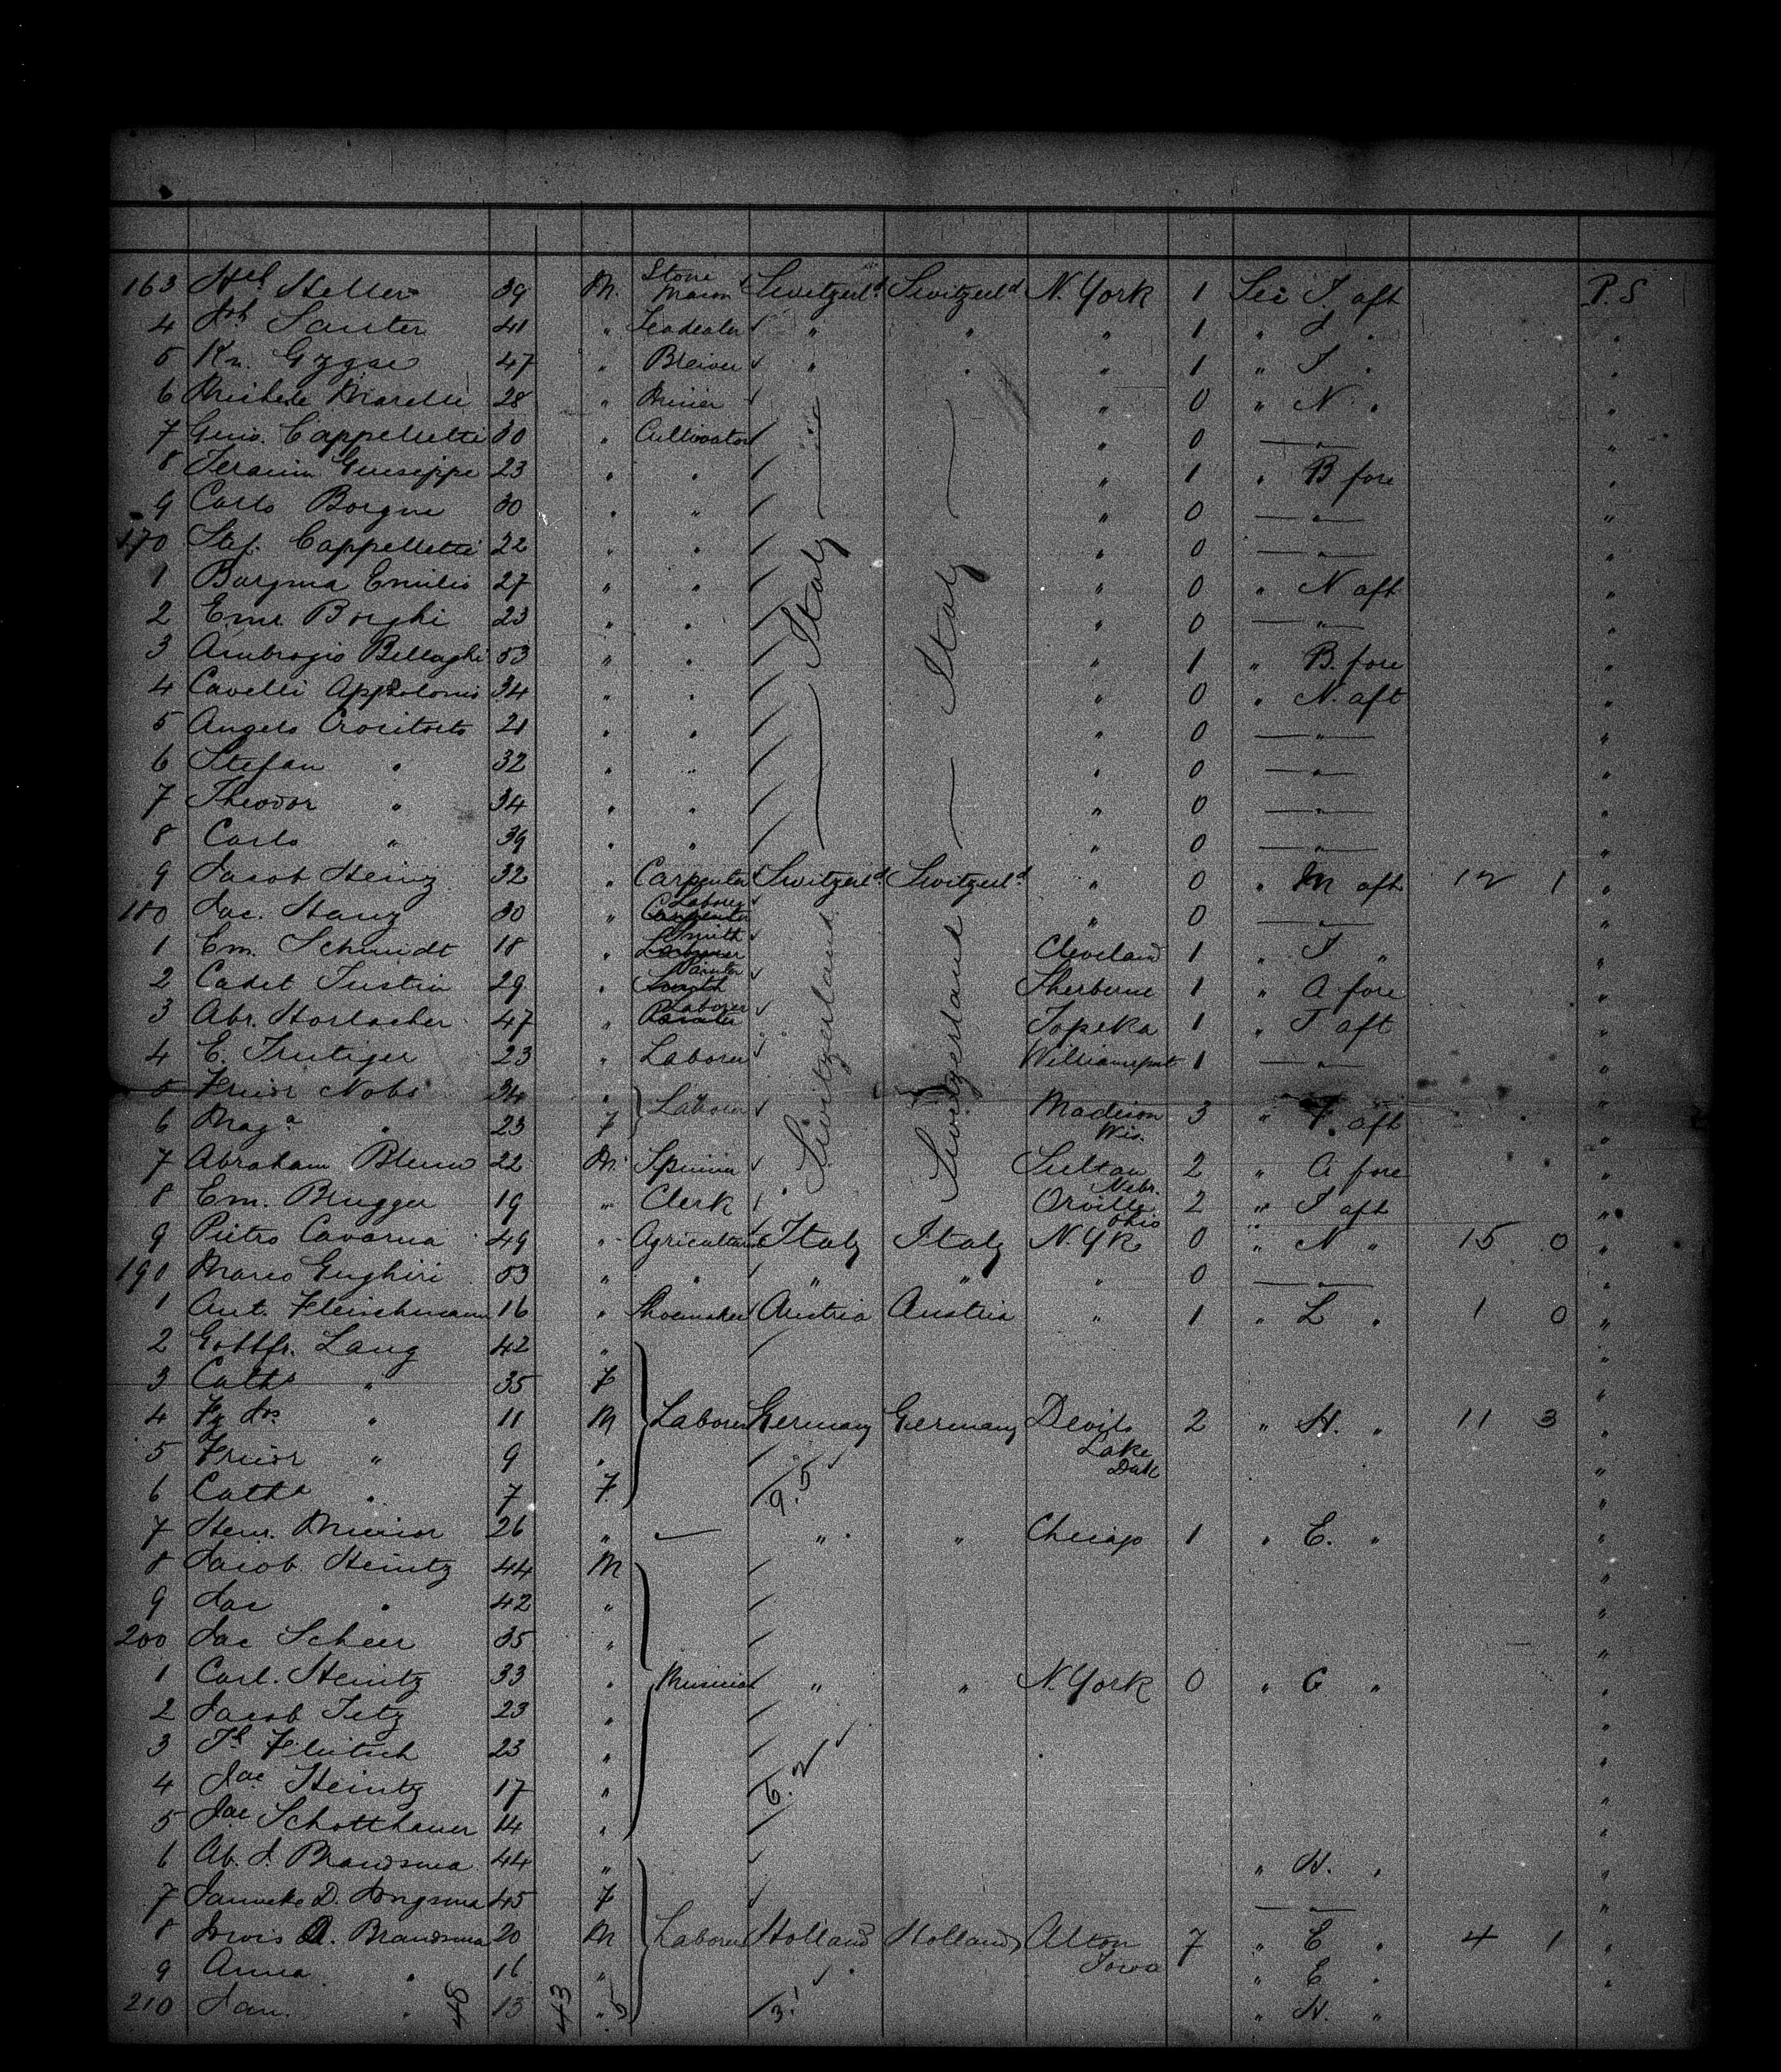 163 Hch Heller 39 M. Stone Mason Switzerld Switzerld N. York 1 Sec I aft P.S
4 Joh Sauter 41 " " " " 1 " I "
5 Kn. Gygax 47 " Brewer " " " 1 " I "
6 Michele Maretti 28 " Miner " 0 " N " "
7 Guis. Cappelletti 30 " Cultivator " 0 — " — "
8 Guiseppe 23 " " " 1 " B fore "
9 Carlo Borgne 30 " " " 0 — " — "
170 Stef. Cappelletti 22 " " " 0 — " — "
1 Borgna Emilio 27 " " Italy Italy " 0 " N aft "
2 Eme Borghi 23 " " " 0 — " — "
3 Ambrogio Bellaghi 53 " " " 1 " B. fore "
4 Cavelli 34 " " " 0 " N. aft "
5 Angelo 21 " " " 0 — " — "
6 Stefan " 32 " " " 0 — " — "
7 Theodor " 34 " " " 0 — " — "
8 Carlo " 39 " " " 0 — " — "
9 Jacob Heinz 32 " Carpenter Switzerld Switzerld " 0 " M aft 12 1 "
180 Jac. Hauz 30 " Laborer " 0 — " — "
1 Em. Schmidt 18 " Smith Cleveland 1 " I " "
2 Cadet Justin 29 " Painter Sherburne 1 " A fore "
3 Abr. Horlacher 47 " Laborer Switzerland Switzerland Topeka 1 " I aft "
4 E. Trutiger 23 " Laborer Williamsport 1 — " — "
5 Friedr Nobs 34 " Laborer Madison Wis. 3 " aft "
6 Maga " 23 F "
7 Abraham Blum 22 M Spinner Sultan Nebr. 2 " A fore "
8 Em. Brugger 19 " Clerk Orville Ohio 2 " I aft "
9 Pietro Cavarna 49 " Italy Italy N. Yk 0 " N " 15 0 "
190 Marco Enghiri 53 " " " " " 0 — " — "
1 Ant. Fleischmann 16 " Shoemaker Austria Austria " 1 " L " 1 0 "
2 Gottfr. Lang 42 " "
3 Catha " 35 F "
4 Fz Jos " 11 M Laborer Germany Germany Devils Lake Dak 2 " H. " 11 3 "
5 Friedr " 9 " "
6 Catha " 7 F 9.5 "
7 Henr. 26 " — " " Chicago 1 " E. " "
8 Jacob Heintz 44 M "
9 Jac " 42 " "
200 Jac Scheer 35 " "
1 Carl. Heintz 33 " Musician " " N. York 0 " C " "
2 Jacob Tetz 23 " "
3 23 " "
4 Jac Heintz 17 " "
5 Jac Schotthauer 14 " "
6 Ab. J. Brandsma 44 " " H. " "
7 Janneke D. Jongsma 45 F — " — "
8 A. Brandsma 20 M Laborer Holland Holland Alton Iowa 7 " E " 4 1 "
9 Anna " 16 " " E " "
210 Jan. " 48 13 43 " 5 3.1 " H. "